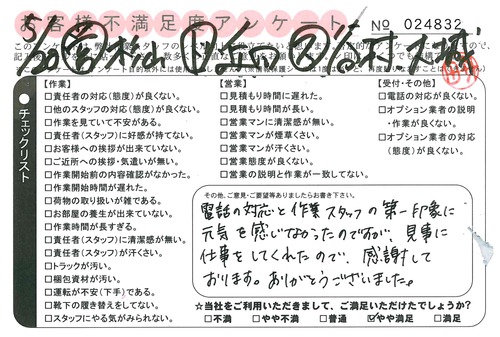 お客様不満足度アンケート
№ 024832
5/20
チェックリスト
【作業】
□責任者の対応(態度)が良くない。
□他のスタッフの対応(態度)が良くない。
□作業を見ていて不安がある。
□責任者(スタッフ)に好感が持てない。
□お客様への挨拶が出来ていない。
□ご近所への挨拶・気遣いが無い。
□作業開始前の内容確認がなかった。
□作業開始時間が遅れた。
□荷物の取り扱いが雑である。
□お部屋の養生が出来ていない。
□作業時間が長すぎる。
□責任者(スタッフ)に清潔感が無い。
□責任者(スタッフ)が汗くさい。
□トラックが汚い。
□梱包資材が汚い。
□運転が不安(下手)である。
□靴下の履き替えをしてない。
□スタッフにやる気がみられない。
【営業】
□見積もり時間に遅れた。
□見積もり時間が長い。
□営業マンに清潔感が無い。
□営業マンが煙草くさい。
□営業マンが汗くさい。
□営業態度が良くない。
□営業の説明と作業が一致してない。
【受付・その他】
□電話の対応が良くない。
□オプション業者の説明
・作業が良くない。
□オプション業者の対応
(態度)が良くない。
その他、ご意見・ご要望等ありましたらお書き下さい。
電話の対応と作業スタッフの第一印象に
元気を感じなかったのですが、見事に
仕事をしてくれたので、感謝して
おります。ありがとうございました。
☆当社をご利用いただきまして、ご満足いただけたでしょうか?
□不満 □やや不満 □普通 ☑やや満足 □満足